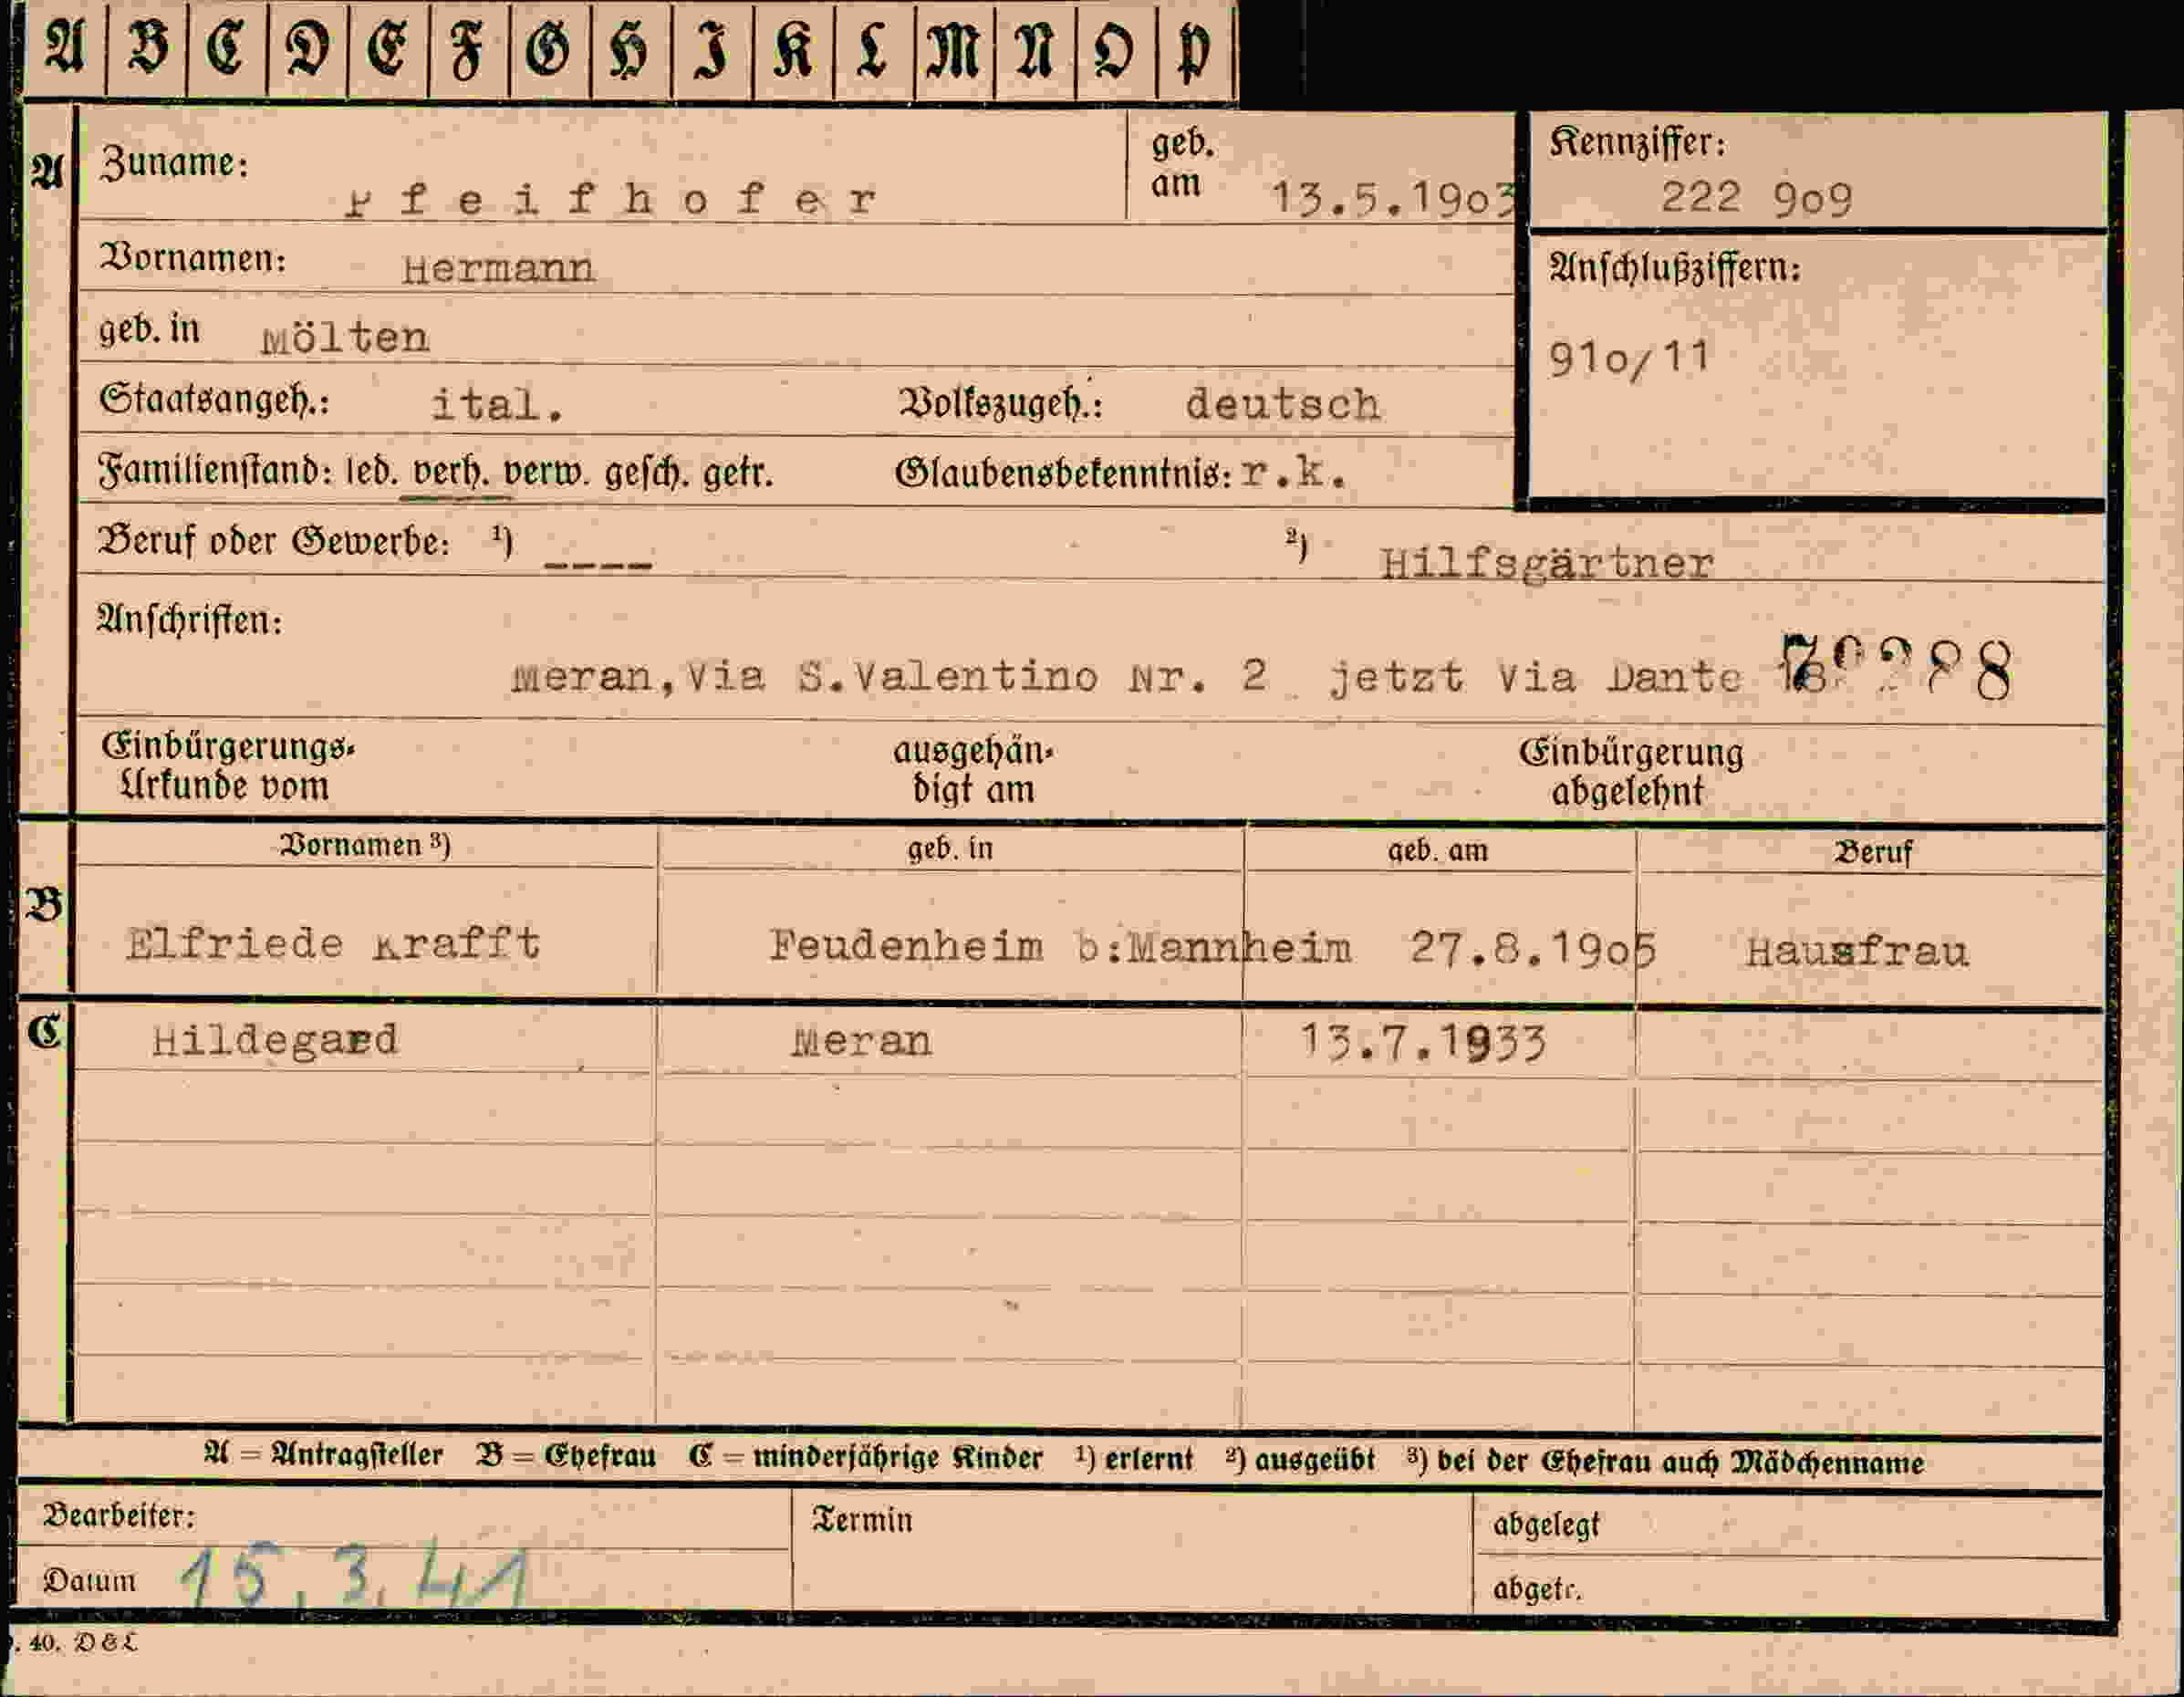 A B C D E F G H I K L M N O P
A Zuname: Pfeifhofer geb. am 13.5.19o3 Kennziffer: 222 9o9
Vornamen: Hermann Anschlußziffern:
geb. in Mölten 91o/11
Staatsangeh.: ital. Volkszugeh.: deutsch
Familienstand: led. verh. verw. gesch. getr. Glaubensbekenntnis: r.k.
Beruf oder Gewerbe: ¹) ---- ²) Hilfsgärtner
Anschriften:
Meran,Via S.Valentino Nr. 2 jetzt Via Dante
Einbürgerungs- Urkunde vom ausgehän- digt am Einbürgerung abgelehnt
Vornamen ³) geb. in geb. am Beruf
B Elfriede Krafft Feudenheim b:Mannheim 27.8.19o5 Hausfrau
C Hildegard Meran 13.7.1933
A = Antragsteller B = Ehefrau C = minderjährige Kinder ¹) erlernt ²) ausgeübt ³) bei der Ehefrau auch Mädchenname
Bearbeiter: Termin abgelegt
Datum 15.3.41 abgetr.
. 40. D & L